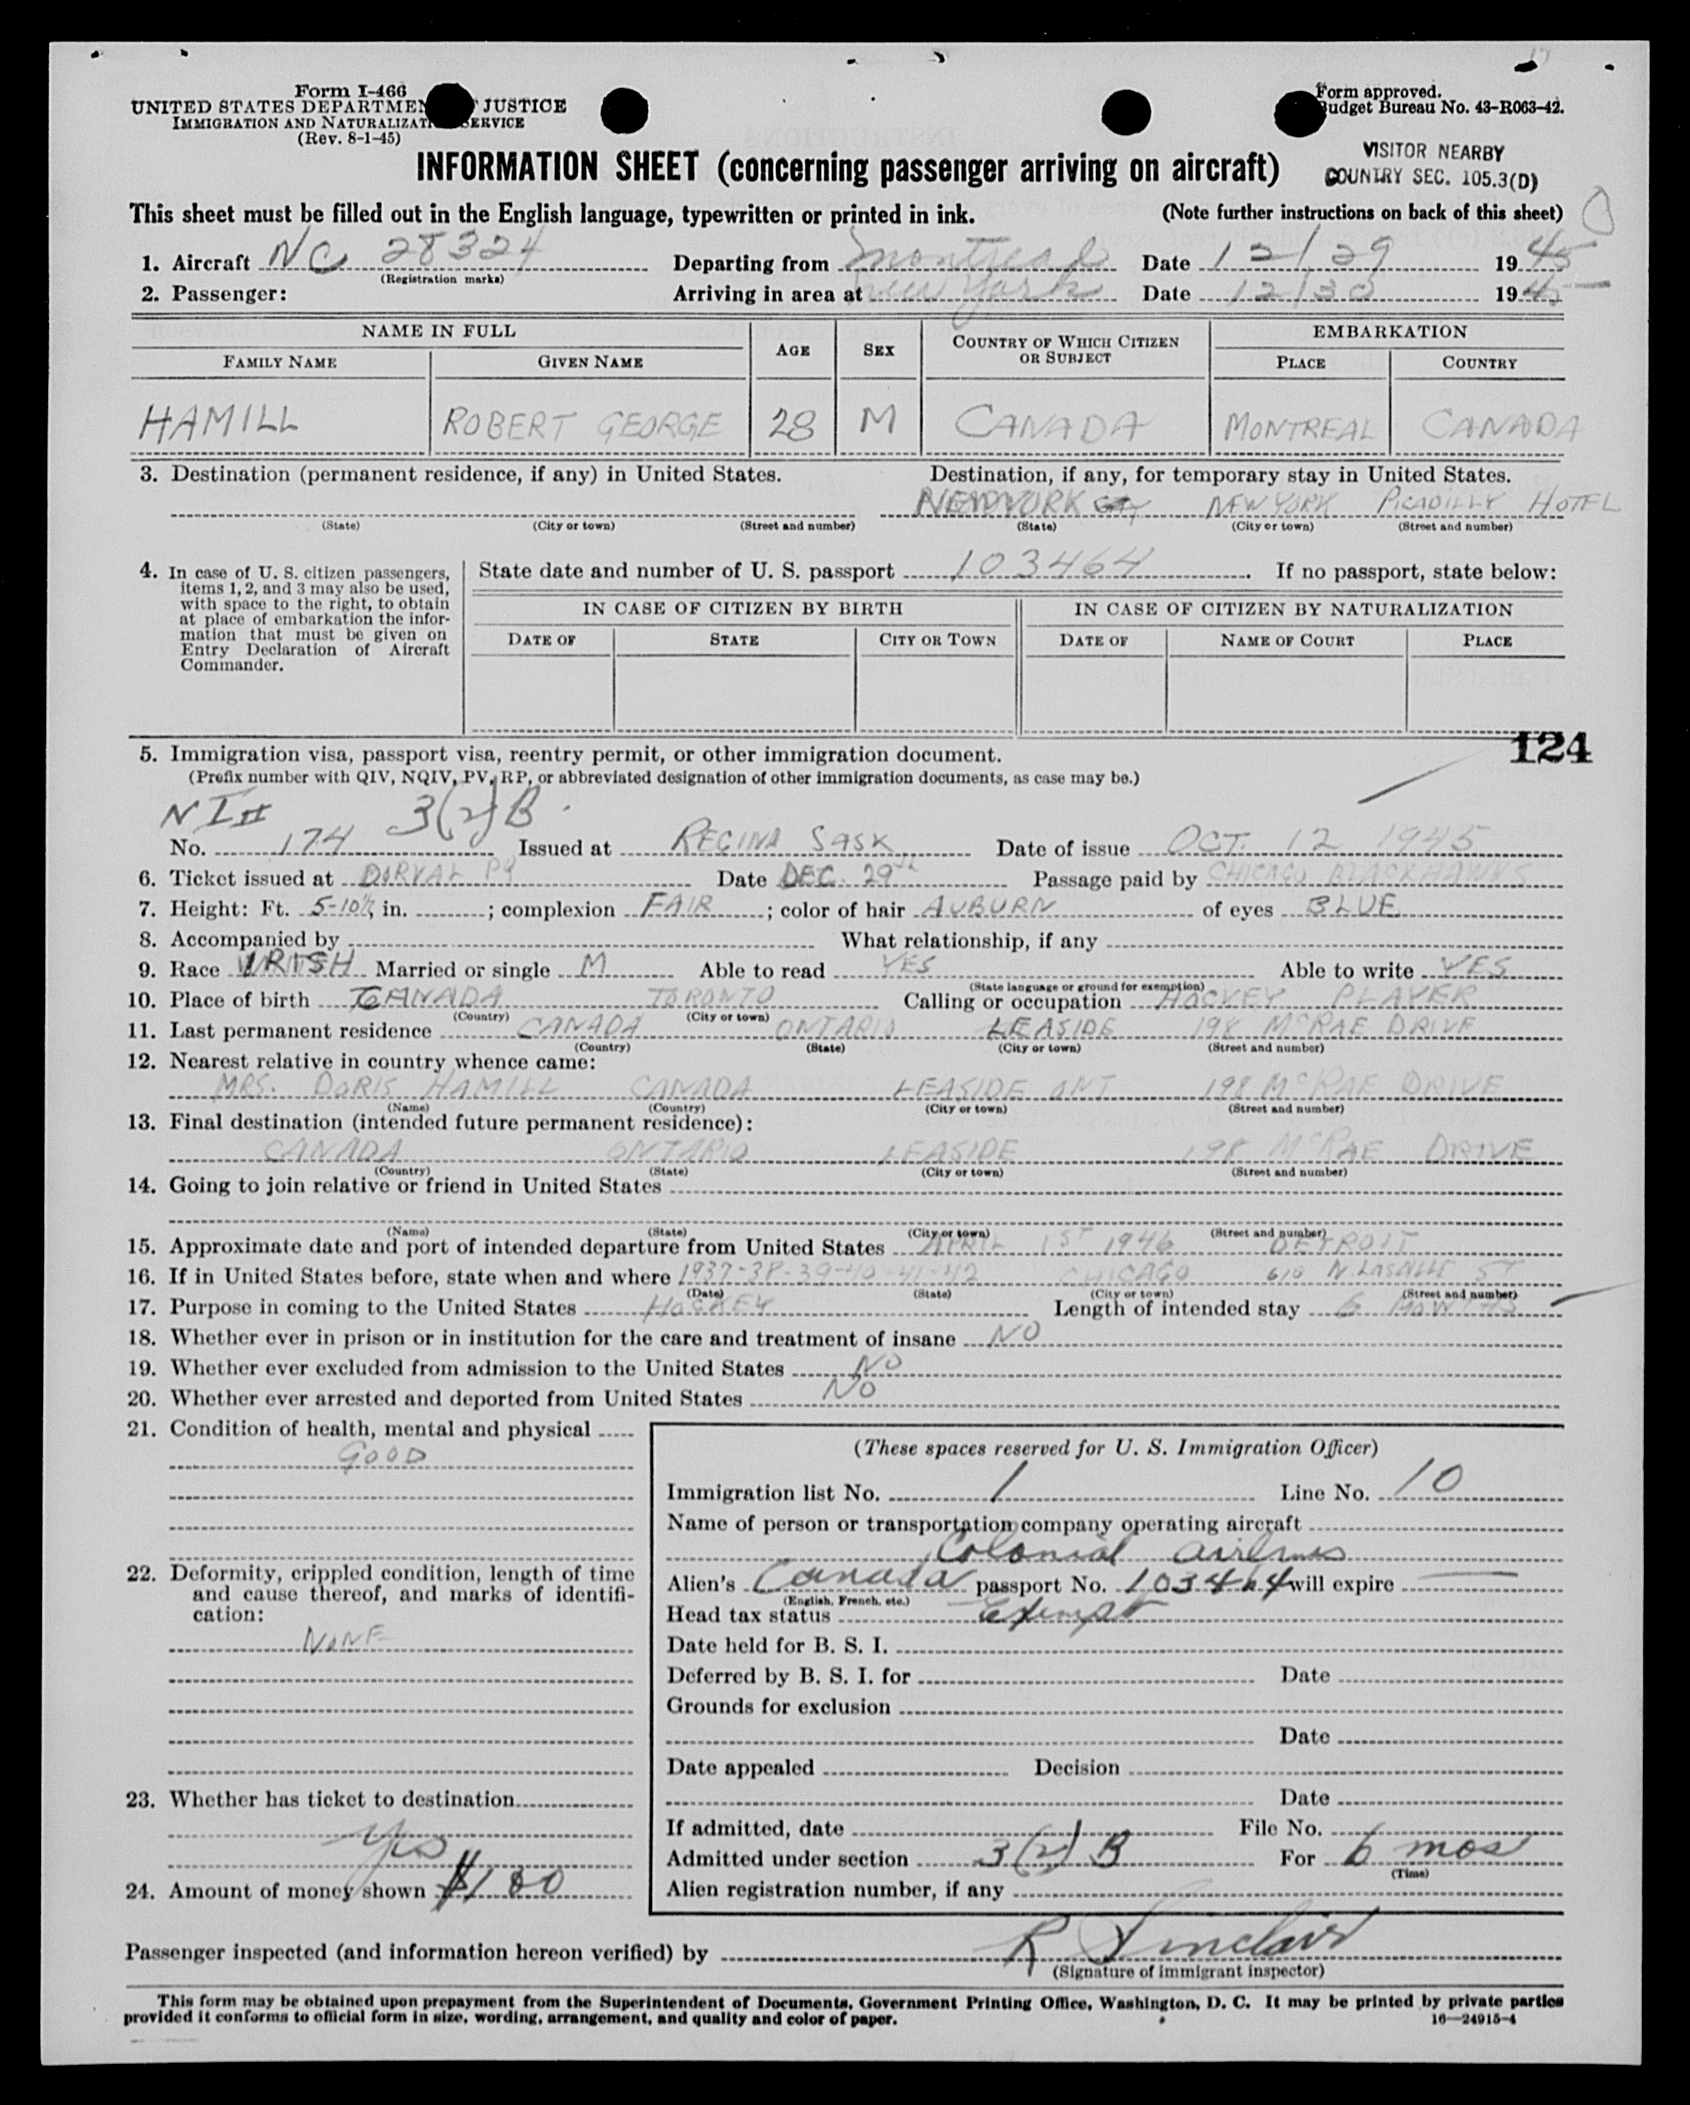 Form I-466
UNITED STATES DEPARTMEN JUSTICE
IMMIGRATION AND NATURALIZATI SERVICE
(Rev. 8-1-45)
Form approved.
Budget Bureau No. 43-R063-42.
VISITOR NEARBY
COUNTRY SEC. 105.3(D)
INFORMATION SHEET (concerning passenger arriving on aircraft)
This sheet must be filled out in the English language, typewritten or printed in ink. (Note further instructions on back of this sheet)
1. Aircraft NC 28324 Departing from Montreal Date 12/29 1945
(Registration marks)
2. Passenger: Arriving in area at New York Date 12/30 1945
NAME IN FULL AGE SEX COUNTRY OF WHICH CITIZEN OR SUBJECT EMBARKATION
FAMILY NAME GIVEN NAME PLACE COUNTRY
HAMILL ROBERT GEORGE 28 M CANADA MONTREAL CANADA
3. Destination (permanent residence, if any) in United States. Destination, if any, for temporary stay in United States.
NEW YORK NEW YORK PICADILLY HOTEL
(State) (City or town) (Street and number) (State) (City or town) (Street and number)
4. In case of U. S. citizen passengers, items 1, 2, and 3 may also be used, with space to the right, to obtain at place of embarkation the information that must be given on Entry Declaration of Aircraft Commander.
State date and number of U. S. passport 103464. If no passport, state below:
IN CASE OF CITIZEN BY BIRTH IN CASE OF CITIZEN BY NATURALIZATION
DATE OF STATE CITY OR TOWN DATE OF NAME OF COURT PLACE
124
5. Immigration visa, passport visa, reentry permit, or other immigration document.
(Prefix number with QIV, NQIV, PV, RP, or abbreviated designation of other immigration documents, as case may be.)
3(2)B
No. 174 Issued at REGINA SASK Date of issue OCT. 12 1945
6. Ticket issued at DORVAL PQ Date DEC. 29th Passage paid by CHICAGO BLACKHAWKS
7. Height: Ft. 5-10½ in. ; complexion FAIR ; color of hair AUBURN of eyes BLUE
8. Accompanied by What relationship, if any
9. Race IRISH Married or single M Able to read YES Able to write YES
(State language or ground for exemption)
10. Place of birth CANADA TORONTO Calling or occupation HOCKEY PLAYER
(Country) (City or town)
11. Last permanent residence CANADA ONTARIO LEASIDE 198 McRAE DRIVE
(Country) (State) (City or town) (Street and number)
12. Nearest relative in country whence came:
MRS. DORIS HAMILL CANADA LEASIDE ONT 198 McRAE DRIVE
(Name) (Country) (City or town) (Street and number)
13. Final destination (intended future permanent residence):
CANADA ONTARIO LEASIDE 198 McRAE DRIVE
(Country) (State) (City or town) (Street and number)
14. Going to join relative or friend in United States
(Name) (State) (City or town) (Street and number)
15. Approximate date and port of intended departure from United States APRIL 1ST 1946 DETROIT
16. If in United States before, state when and where 1937-38-39-40-41-42 CHICAGO 610 N. LASALLE ST
(Date) (State) (City or town) (Street and number)
17. Purpose in coming to the United States HOCKEY Length of intended stay 6 MONTHS
18. Whether ever in prison or in institution for the care and treatment of insane NO
19. Whether ever excluded from admission to the United States NO
20. Whether ever arrested and deported from United States NO
21. Condition of health, mental and physical
GOOD
22. Deformity, crippled condition, length of time and cause thereof, and marks of identification:
NONE
23. Whether has ticket to destination
Yes
24. Amount of money shown $100
(These spaces reserved for U. S. Immigration Officer)
Immigration list No. 1 Line No. 10
Name of person or transportation company operating aircraft
Colonial Airlines
Alien's Canada passport No. 103464 will expire
(English, French, etc.)
Head tax status Exempt
Date held for B. S. I.
Deferred by B. S. I. for Date
Grounds for exclusion
Date
Date appealed Decision
Date
If admitted, date File No.
Admitted under section 3(2)B For 6 mos
(Time)
Alien registration number, if any
Passenger inspected (and information hereon verified) by R Sinclair
(Signature of immigrant inspector)
This form may be obtained upon prepayment from the Superintendent of Documents, Government Printing Office, Washington, D. C. It may be printed by private parties
provided it conforms to official form in size, wording, arrangement, and quality and color of paper. 16—24915-4